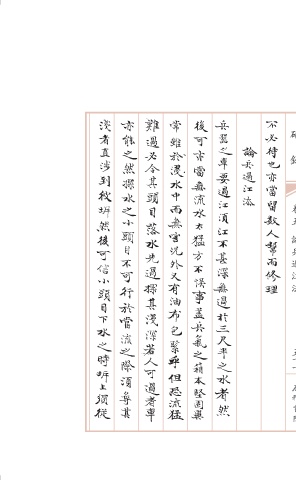 不必待也亦當留數人幫而修理
論兵過江法
兵器之車要過江須江不甚深無過於三尺半之水者然
後可亦當無流水太猛方不悮事蓋兵氣之箱本堅固異
常雖於浸水中而無害況外又有油布包緊乎但恐流猛
難過必令其頭目落水先過探其淺深若人可過者車
亦能之然探水之小頭目不可行於當流之際須尋其
淺者直涉到彼岸然後可信小頭目下水之時岸上須從